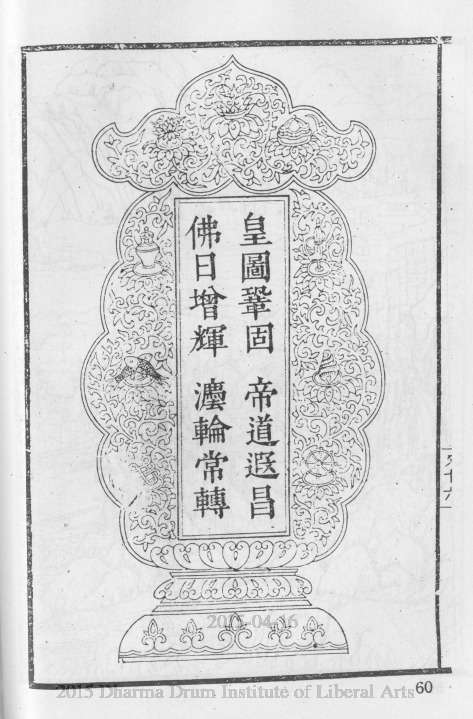 皇圖鞏固　帝道遐昌
佛日增輝　灋輪常轉
2015-04-16
2015 Dharma Drum Institute of Liberal Arts
60